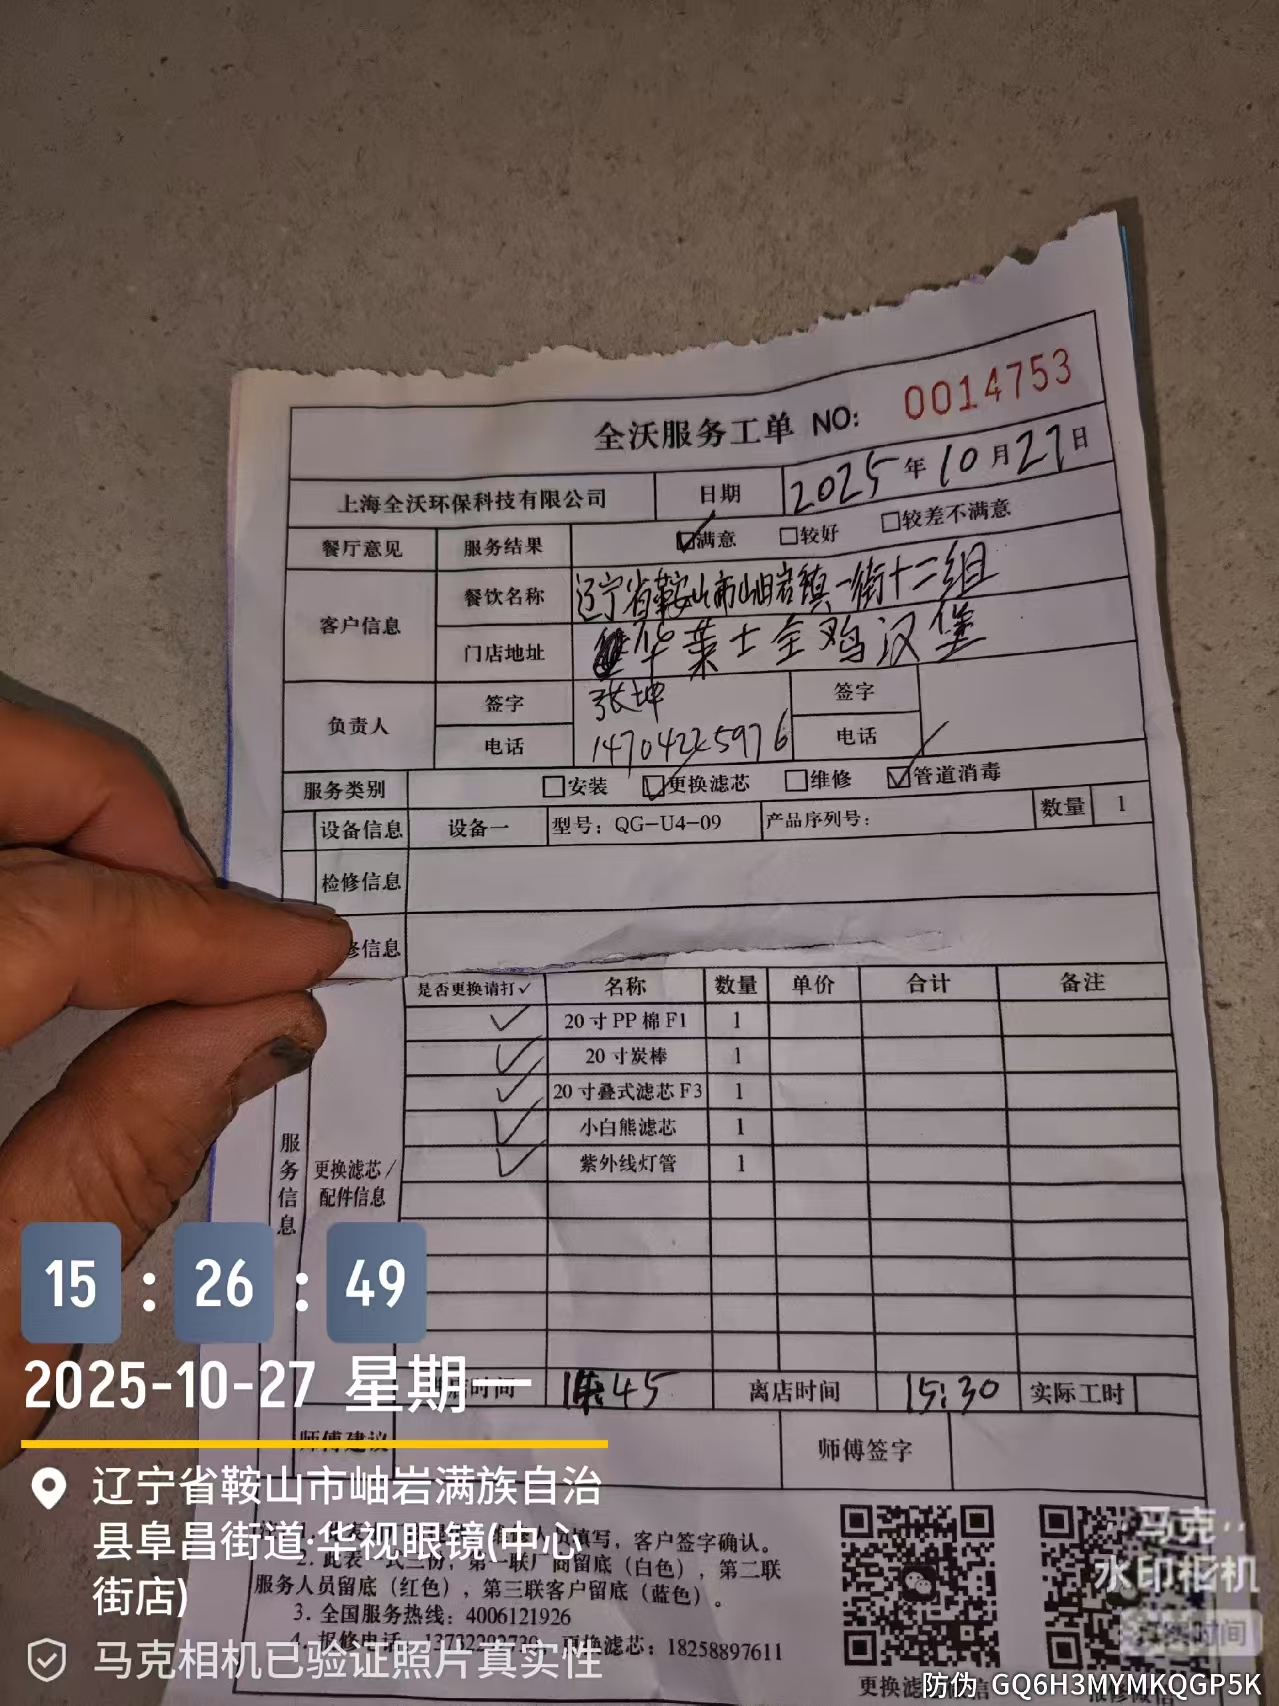 全沃服务工单 NO: 0014753
上海全沃环保科技有限公司 日期 2025年10月27日
餐厅意见 服务结果 ☑满意 □较好 □较差不满意
客户信息 餐饮名称 辽宁省鞍山市岫岩镇一街十二组
门店地址 华莱士全鸡汉堡
负责人 签字 张坤 签字
电话 14704225976 电话
服务类别 □安装 ☑更换滤芯 □维修 ☑管道消毒
设备信息 设备一 型号：QG-U4-09 产品序列号： 数量 1
检修信息
修信息
服务信息
更换滤芯/配件信息
是否更换请打✓ 名称 数量 单价 合计 备注
✓ 20寸PP棉F1 1
✓ 20寸炭棒 1
✓ 20寸叠式滤芯F3 1
✓ 小白熊滤芯 1
✓ 紫外线灯管 1
店时间 45 离店时间 15:30 实际工时
师傅建议 师傅签字
填写，客户签字确认。
2. 此表一式三份，第一联厂商留底（白色），第二联
服务人员留底（红色），第三联客户留底（蓝色）。
3. 全国服务热线：4006121926
4. 报修电话 更换滤芯：18258897611
15:26:49
2025-10-27 星期一
辽宁省鞍山市岫岩满族自治
县阜昌街道·华视眼镜(中心
街店)
马克相机已验证照片真实性
马克
水印相机
防伪 GQ6H3MYMKQGP5K